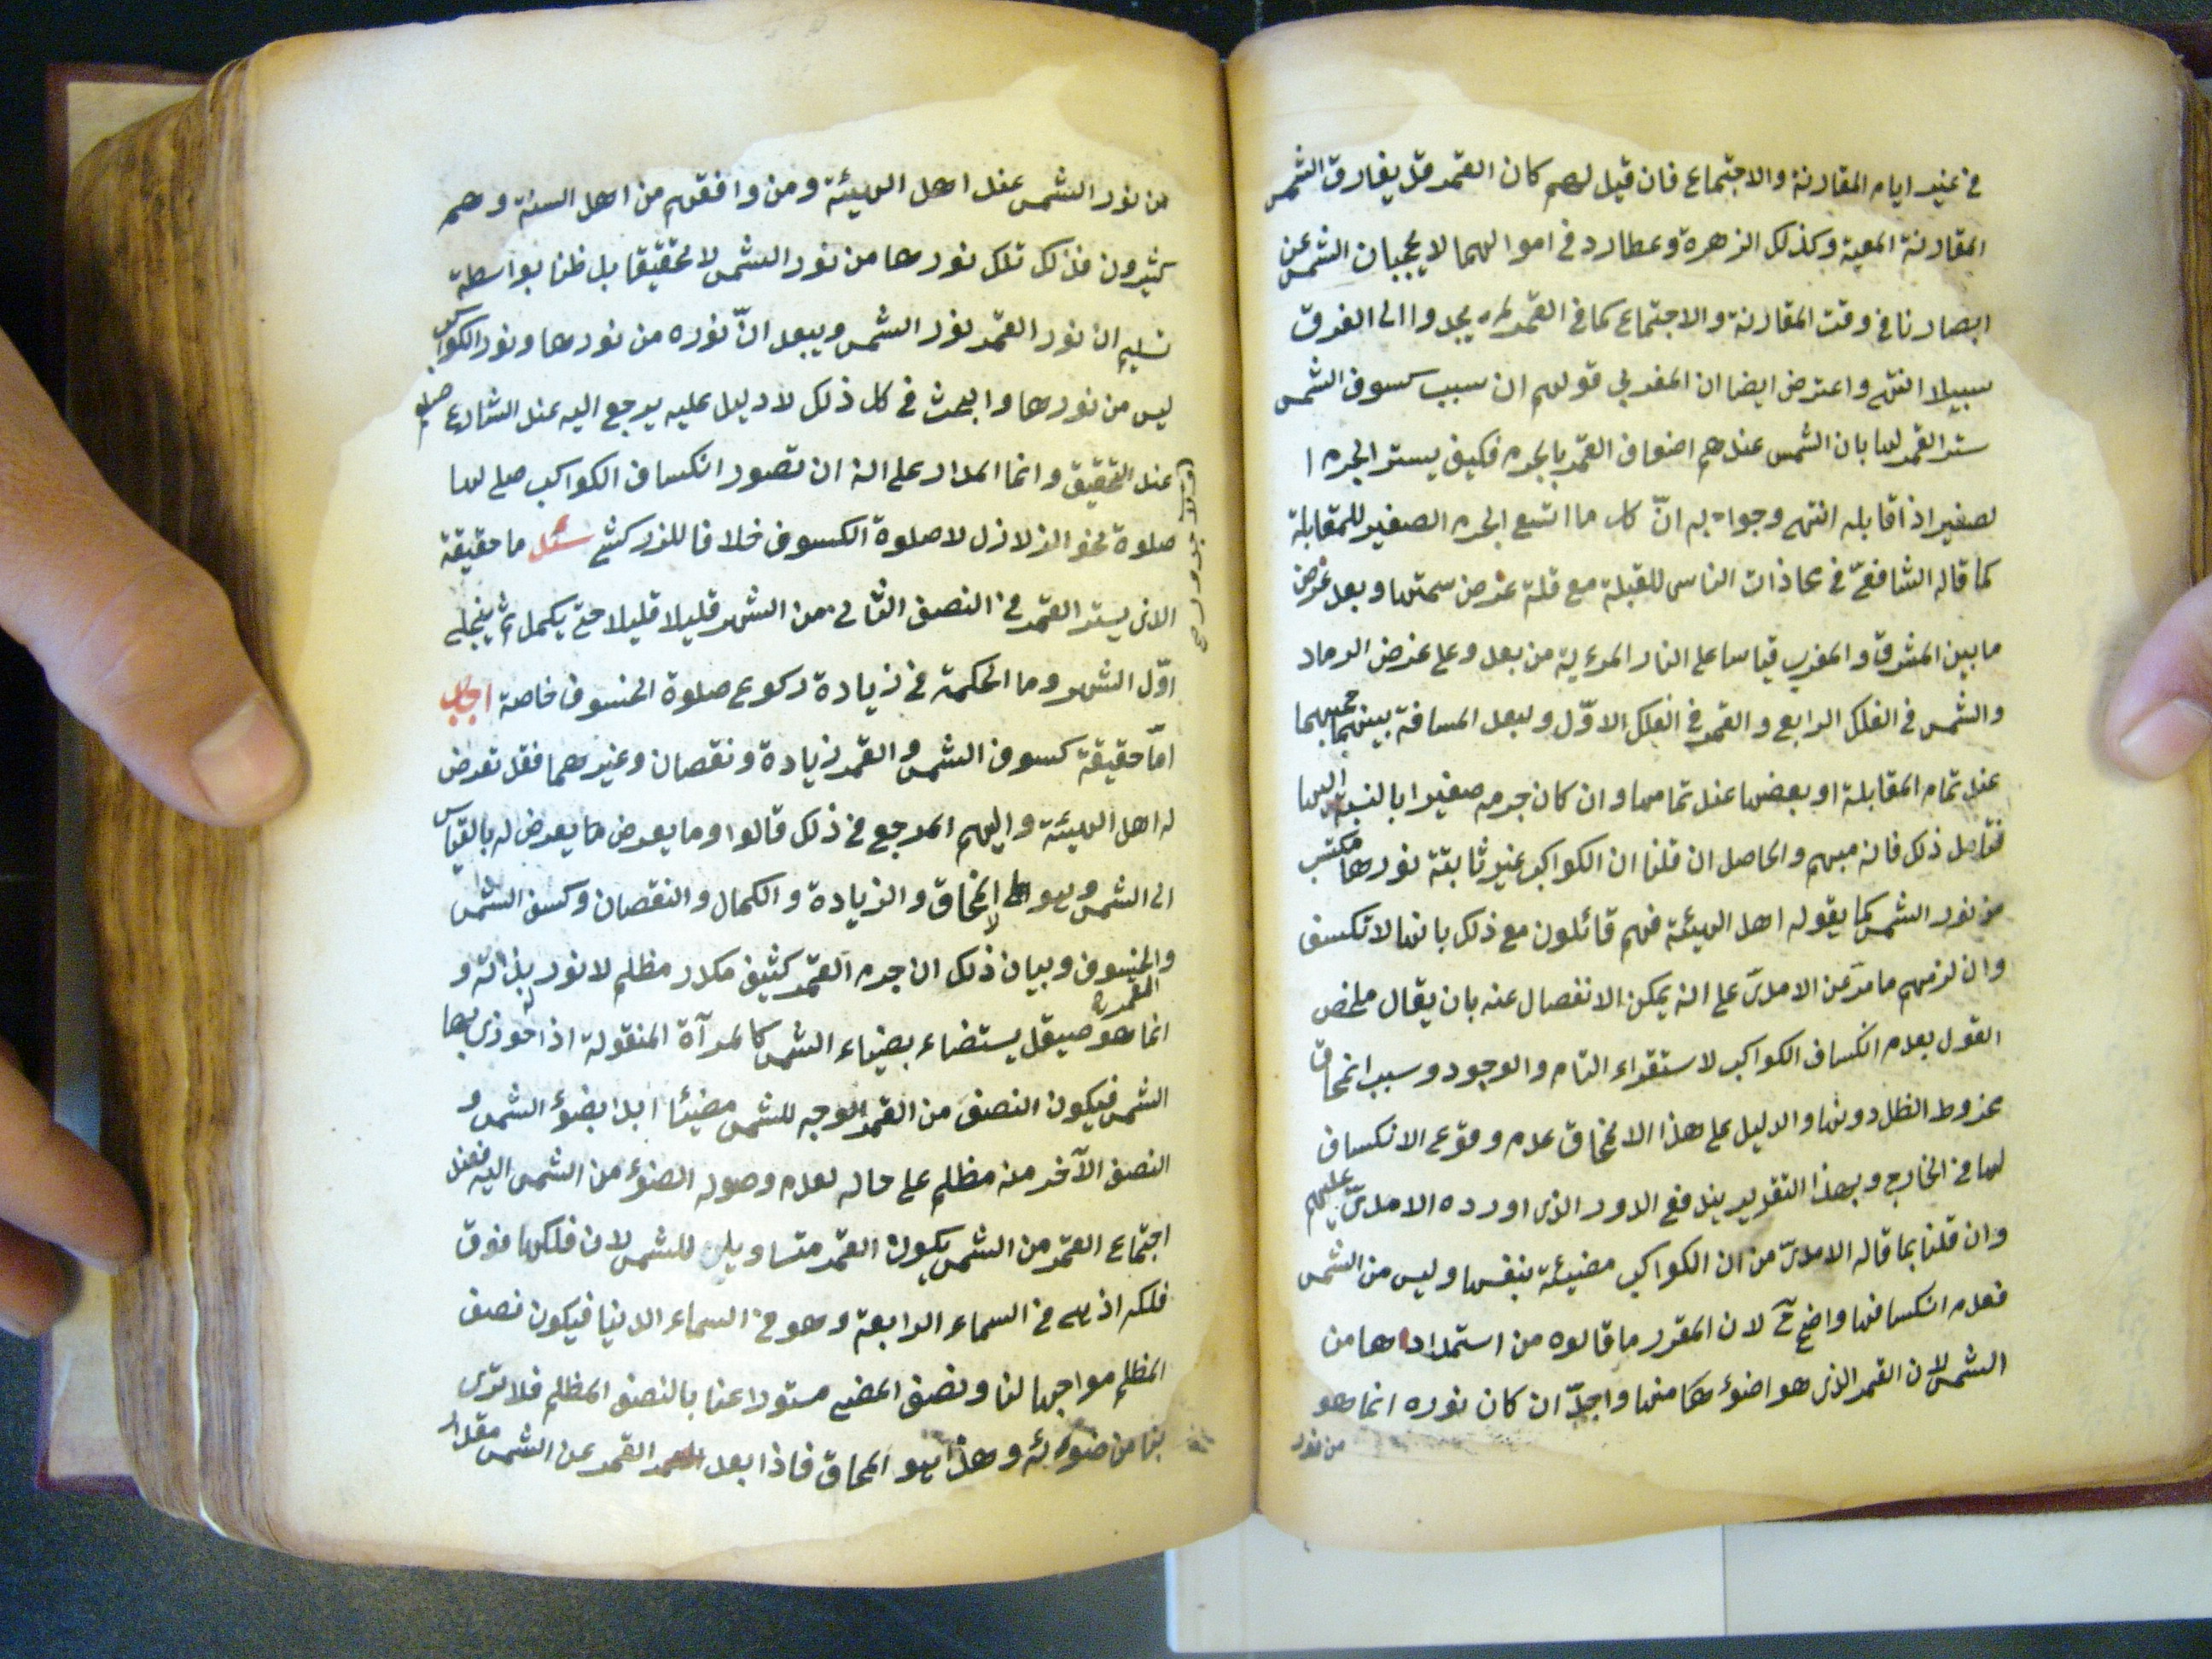 في غير ايام المقارنة والاجتماع فان قيل لهم كان القمر قل يفارق الشمس
المقارنة المعية وكذلك الزهرة وعطارد في اموالهما لا يحجبان الشمس عن
ابصارنا في وقت المقارنة والاجتماع كما في القمر لم يجدوا الى الفرق
سبيلا انتهى واعترض ايضا ابن المغربي قولهم ان سبب كسوف الشمس
ستر القمر لها بان الشمس عندهم اضعاف القمر بالجرم فكيف يستر الجرم ا
لصغير اذا قابله انتهى وجوابه ان كل ما اتسع الجرم الصغير للمقابلة
كما قاله الشافعي في محاذات الناس للقبلة مع قلة عرض سمتها وبعد عرض
ما بين المشرق والمغرب قياسا على النار المرئية من بعد وعلى غرض الرماد
والشمس في الفلك الرابع والقمر في الفلك الاول ولبعد المسافة بينهما حجبها
عند تمام المقابلة او بعضها عند تمامها وان كان جرمه صغيرا بالنسبة اليها
فتامل ذلك فانه مبهم والحاصل ان قلنا ان الكواكب غير ثابتة نورها مكتسب
من نور الشمس كما يقوله اهل الهيئة فهم قائلون مع ذلك بانها لا تكسف
وان لزمهم ما مر عن الامدي على انه يمكن الانفصال عنه بان يقال ملخص
القول بعدم انكساف الكواكب لاستقراء التام والوجود وسبب انمحاق
مخروط الظل دونها والدليل على هذا الانمحاق عدم وقوع الانكساف
لها في الخارج وبهذا التقرير يندفع الدور الذي اورده الامدي عليهم
وان قلنا بما قاله الامدي من ان الكواكب مضيئة بنفسها وليس من الشمس
فعدم انكسافها واضح لان المقرر ما قالوه من استمدادها من
الشمس لان القمر الذي هو اضوء منها واجل ان كان نوره انما هو
من نور
من نور الشمس عند اهل الهيئة ومن وافقهم من اهل السنة وهم
كثيرون فذلك تلك نورها من نور الشمس لا تحقيقا بل ظنا بواسطة
تسليم ان نور القمر نور الشمس ويبعد ان نوره من نورها ونور الكواكب
ليس من نورها والبحث في كل ذلك لا دليل عليه يرجع اليه عند الشارع صلع
عند التحقيق وانما المدار على انه ان تصور انكساف الكواكب صلى لها
صلوة نحو الزلازل لا صلوة الكسوف خلافا للزركشي سئل ما حقيقة
الذي يستر القمر في النصف الثاني من الشهر قليلا قليلا حتى يكمل ثم ينجلي
اول الشهر وما الحكمة في زيادة ركوع صلوة الخسوف خاصة اجاب
اما حقيقة كسوف الشمس والقمر زيادة ونقصان وغيرهما فقد تعرض
له اهل الهيئة واليهم المرجع في ذلك قالوا وما يعرض ما يعرض له بالقياس
الى الشمس وهو المحاق والزيادة والكمال والنقصان وكسف الشمس
والخسوف وبيان ذلك ان جرم القمر كثيف مكدر مظلم لا نور له بذاته و
انما هو صيقل يستضاء بضياء الشمس كالمرآة المنقولة اذا حوذي بها
الشمس فيكون النصف من القمر الوجه للشمس مضيئا ابدا بضوء الشمس و
النصف الآخر منه مظلم على حاله لعدم وصول الضوء من الشمس اليه فعند
اجتماع القمر من الشمس يكون القمر متساو للشمس لان فلكها فوق
فلكه اذ هي في السماء الرابعة وهو في السماء الدنيا فيكون نصف
المظلم مواجها لنا ونصف المضي مستورا عنا بالنصف المظلم فلا نرى
بنا من ضوئه وهذا هو المحاق فاذا بعد القمر عن الشمس مقدار